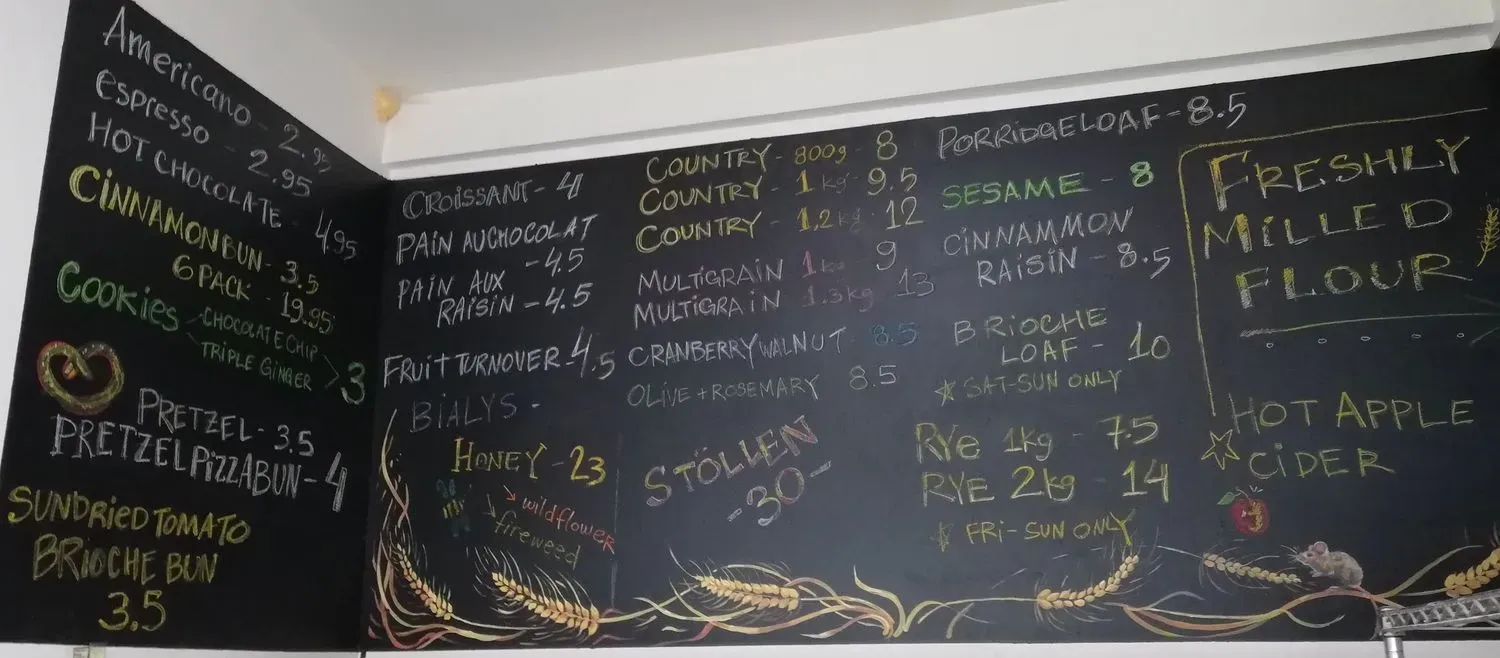 Americano - 2.95
espresso - 2.95
HOT CHOCOLATE - 4.95
CINNAMON BUN - 3.5
6 PACK - 19.95
Cookies
CHOCOLATE CHIP
TRIPLE GINGER
3
PRETZEL - 3.5
PRETZEL PIZZA BUN - 4
SUNDRIED TOMATO
BRIOCHE BUN
3.5
CROISSANT - 4
PAIN AU CHOCOLAT
- 4.5
PAIN AUX
RAISIN - 4.5
FRUIT TURNOVER - 4.5
BIALYS -
HONEY - 23
wildflower
fireweed
COUNTRY - 800g - 8
COUNTRY - 1 kg - 9.5
COUNTRY - 1,2 kg - 12
MULTIGRAIN 1 kg 9
MULTIGRAIN 1.3kg 13
CRANBERRY WALNUT - 8.5
OLIVE + ROSEMARY 8.5
STÖLLEN
- 30 -
PORRIDGE LOAF - 8.5
SESAME - 8
CINNAMMON
RAISIN - 8.5
BRIOCHE
LOAF - 10
SAT-SUN ONLY
RYe 1kg - 7.5
RYE 2kg - 14
FRI-SUN ONLY
FRESHLY
MILLED
FLOUR
HOT APPLE
CIDER